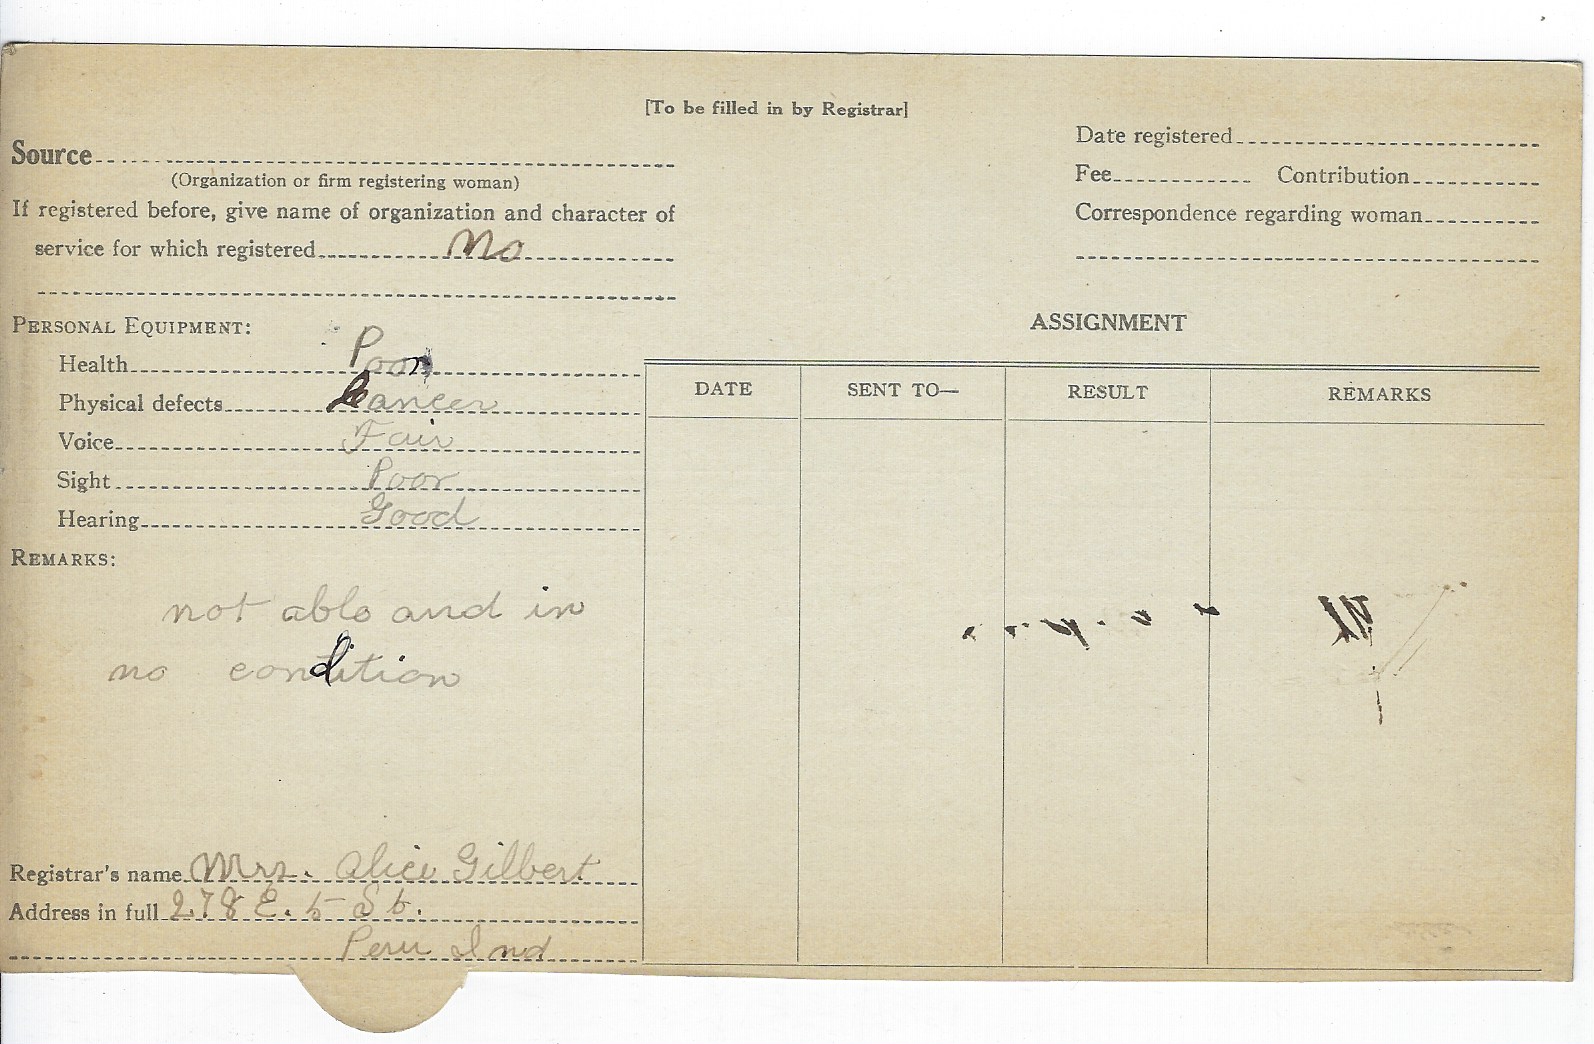 [To be filled in by Registrar]
Source
(Organization or firm registering woman)
If registered before, give name of organization and character of
service for which registered No
Date registered
Fee Contribution
Correspondence regarding woman
PERSONAL EQUIPMENT:
Health Poor
Physical defects Cancer
Voice Fair
Sight Poor
Hearing Good
REMARKS:
not able and in
no condition
Registrar's name Mrs. Alice Gilbert
Address in full 278 E. 5 St.
Peru Ind
ASSIGNMENT
DATE SENT TO— RESULT REMARKS